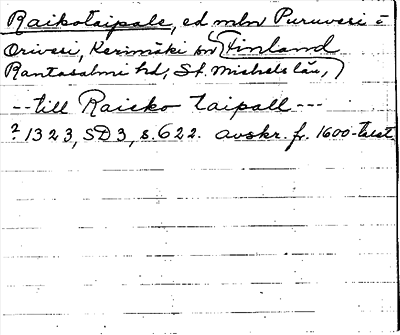 Raikotaipale, ed mln Puruvesi -
Orivesi, Kerimäki sn Finland
Rantasalmi hd, St. Michels län,
-- till Raicko taipall ---
? 1323, SD 3, s. 622. avskr. fr. 1600-talet.